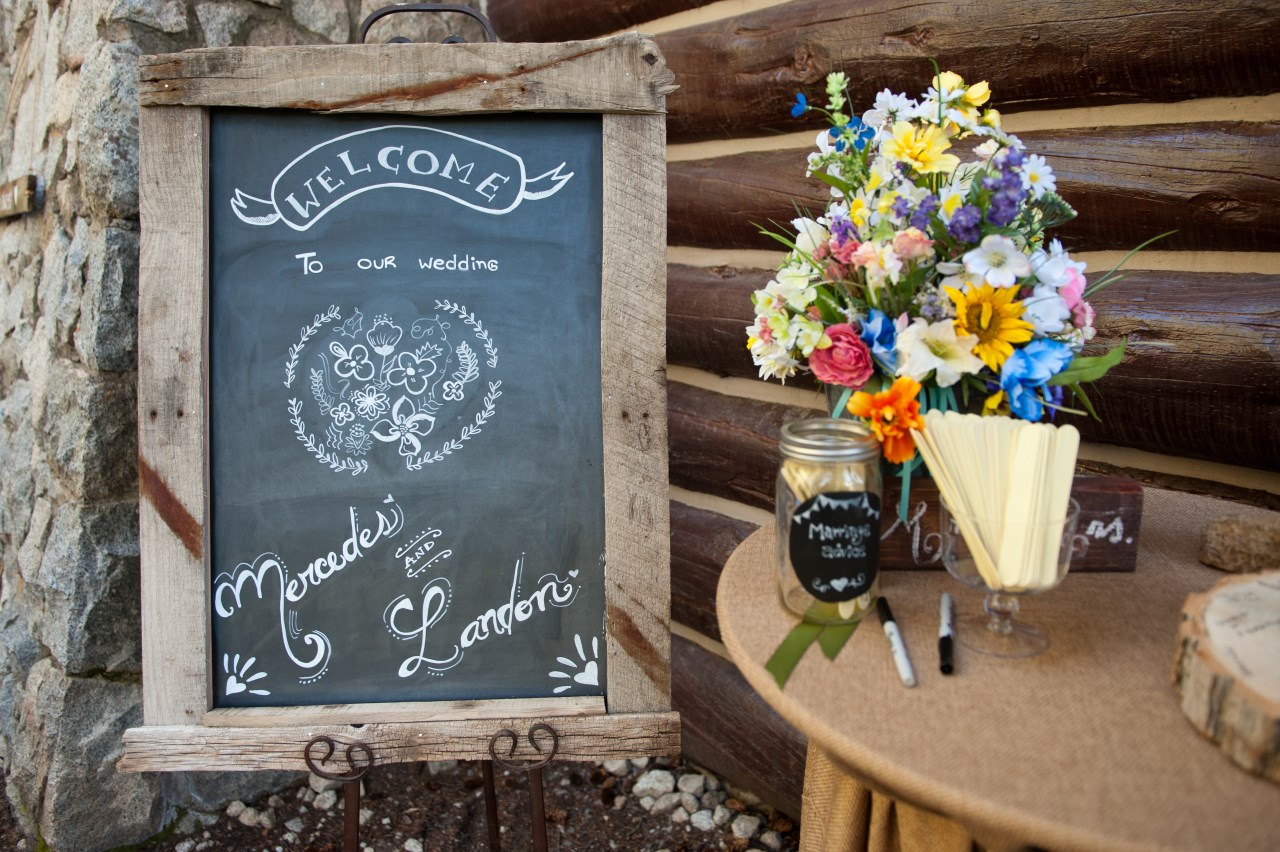 WELCOME
To our wedding
Mercedes
AND
Landon
Marriage
advice